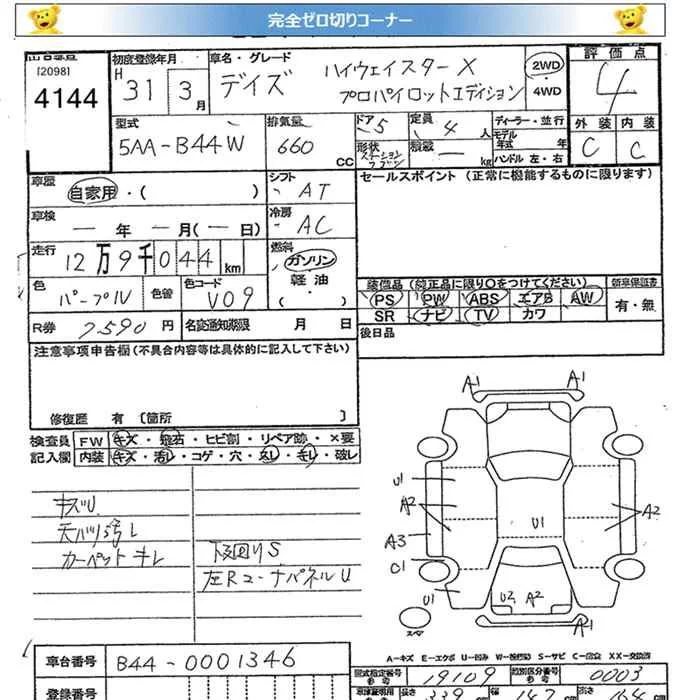 完全ゼロ切りコーナー
[2098]
4144
初度登録年月
H 31 3月
車名・グレード
デイズ
ハイウェイスターX
プロパイロットエディション
2WD
・
4WD
評価点
4
外装 内装
C C
型式
5AA-B44W
排気量
660 CC
ドア 5
形状 ステーションワゴン
定員 4 人
積載 ー kg
ディーラー・並行
モデル年式 年
ハンドル 左・右
車歴
自家用・( )
シフト
AT
セールスポイント (正常に機能するものに限ります)
車検
ー 年 ー 月(ー 日)
冷房
AC
走行
12万9千044km
燃料
ガソリン
軽油
・( )
色
パープル
色替
色コード
V09
装備品(純正品に限り○をつけてください)
新車保証書
PS PW ABS エアB AW
有・無
SR ナビ TV カワ
R券 7590 円
名変通知期限 月 日
後日品
注意事項申告欄(不具合内容等は具体的に記入して下さい)
修復歴 有 [箇所 ]
検査員記入欄
FW キズ・飛石・ヒビ割・リペア跡・×要
内装 キズ・汚レ・コゲ・穴・スレ・キレ・破レ
キズU
天バリ汚レ
カーペットキレ
下回りS
左RコーナパネルU
A1 A1
U1
A2
A2
U1
A3
C1
U1
U2 A2
A1
スペア
A-キズ E-エクボ U-凹み W-板修跡 S-サビ C-腐食 XX-交換済
車台番号
B44-0001346
型式指定番号 19109
類別区分番号 0003
登録番号
長さ 339
幅 147
高さ 164